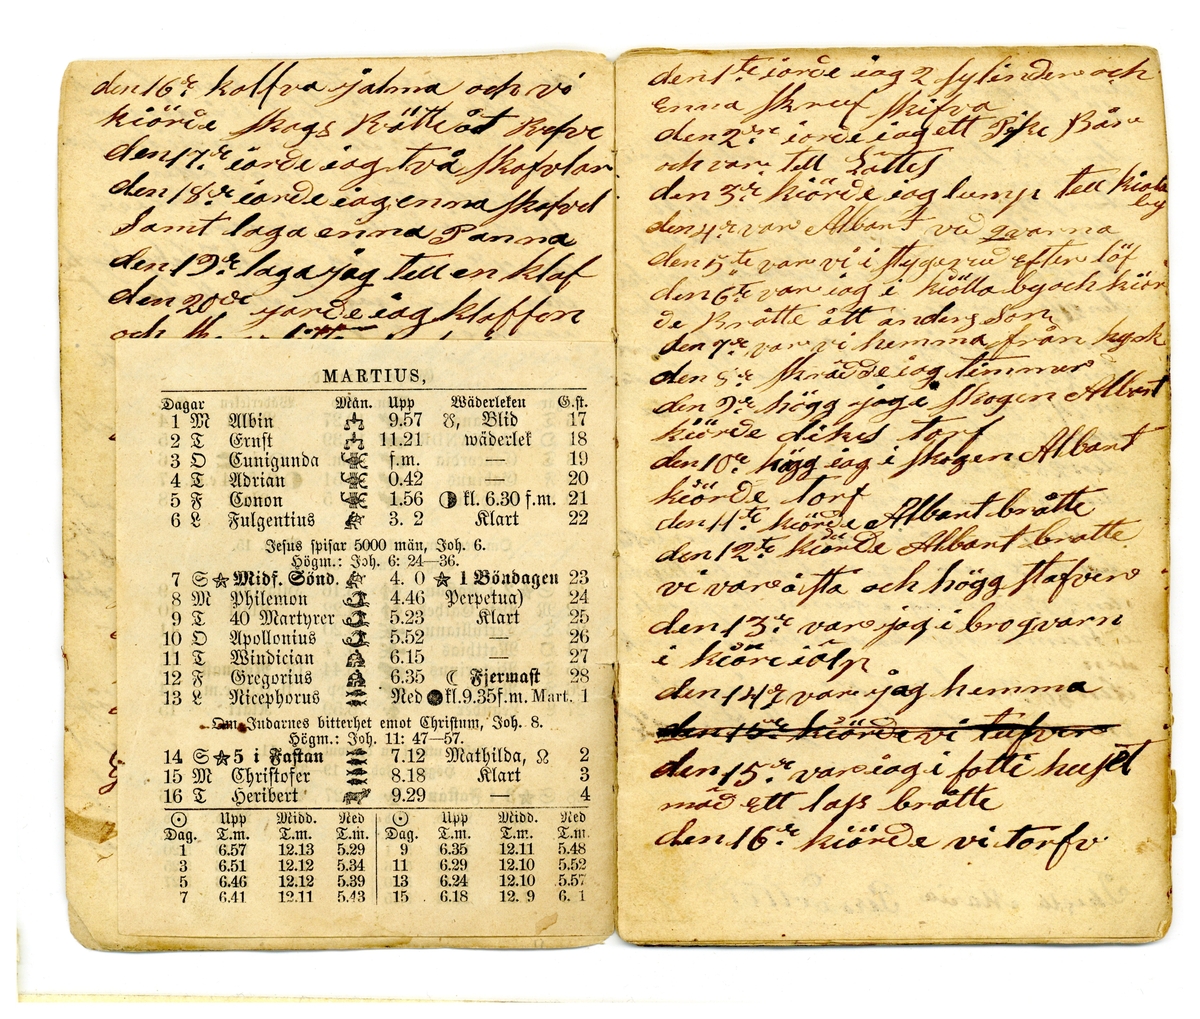 den 16de kalfva jalma och vi
kiörde skogs Bråtte åt Refve
den 17de iorde iag två skofvlar
den 18de iorde iag enna skofvel
Samt laga enna Panna
den 19de laga jag tell en klaf
den 20de jorde iag klaffen
och
MARTIUS,
Dagar Mån. Upp Wäderleken G.st.
1 M Albin 9.57 Blid 17
2 T Ernst 11.21 wäderlek 18
3 O Cunigunda f.m. — 19
4 T Adrian 0.42 — 20
5 F Conon 1.56 kl. 6.30 f.m. 21
6 L Fulgentius 3. 2 Klart 22
Jesus spisar 5000 män, Joh. 6.
Högm.: Joh. 6: 24—36.
7 S Midf. Sönd. 4. 0 1 Böndagen 23
8 M Philemon 4.46 Perpetua) 24
9 T 40 Martyrer 5.23 Klart 25
10 O Apollonius 5.52 — 26
11 T Windician 6.15 — 27
12 F Gregorius 6.35 ☾ Fjermast 28
13 L Nicephorus Ned kl.9.35f.m. Mart. 1
Om Judarnes bitterhet emot Christum, Joh. 8.
Högm.: Joh. 11: 47—57.
14 S 5 i Fastan 7.12 Mathilda, ☊ 2
15 M Christofer 8.18 Klart 3
16 T Heribert 9.29 — 4
☉ Upp Midd. Ned ☉ Upp Midd. Ned
Dag. T.m. T.m. T.m. Dag. T.m. T.m. T.m.
1 6.57 12.13 5.29 9 6.35 12.11 5.48
3 6.51 12.12 5.34 11 6.29 12.10 5.52
5 6.46 12.12 5.39 13 6.24 12.10 5.57
7 6.41 12.11 5.43 15 6.18 12. 9 6. 1
den 1te iorde iag 2 sylinder och
Enna skruf skifva
den 2re iorde iag ett Pike Bår
och var tell Lottes
den 3de kiörde iag lump tell kiöta
by
den 4de var Albart vid qvarna
den 5te var vi i stygerud efter löf
den 6te var iag i kiötta by och kiör
de Bråtte ått anders Son
den 7de var vi hemma från kyrk
den 8de skrädde iag timmer
den 9de högg jag i skogen Albert
kiörde dikes torf
den 10de högg iag i skogen Albart
kiörde torf
den 11te kiörde Albart bråtte
den 12te kiörde Albart bråtte
vi var åsta och högg stafver
den 13de var jag i brogvarn
i kiöre iölp
den 14de var jag hemma
den 15de kiörde vi tufver
den 15de var iag i fatti huset
mäd ett lass bråtte
den 16de kiörde vi torfv